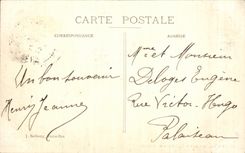 CARTE POSTALE
CORRESPONDANCE
ADRESSE
Un bon souvenir
Henry Jeanne
Mme et Monsieur
Deloges Eugène
Rue Victor-Hugo
Palaiseau